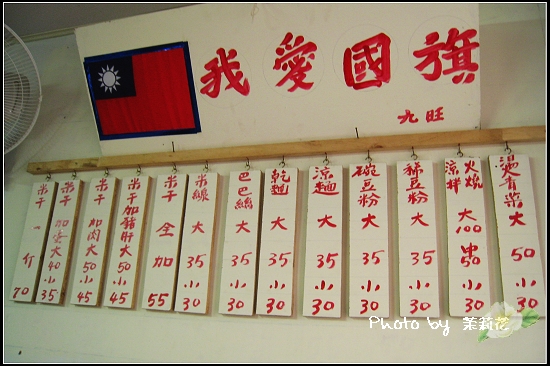 我愛國旗
九旺
米干一斤70
米干加蛋大40小35
米干加肉大50小45
米干加豬肝大50小45
米干全加55
米線大35小30
巴巴絲大35小30
乾麵大35小30
涼麵大35小30
碗豆粉大35小30
稀豆粉大35小30
火燒
涼拌
大100
50小30
燙青菜大50小30
Photo by 茉莉花